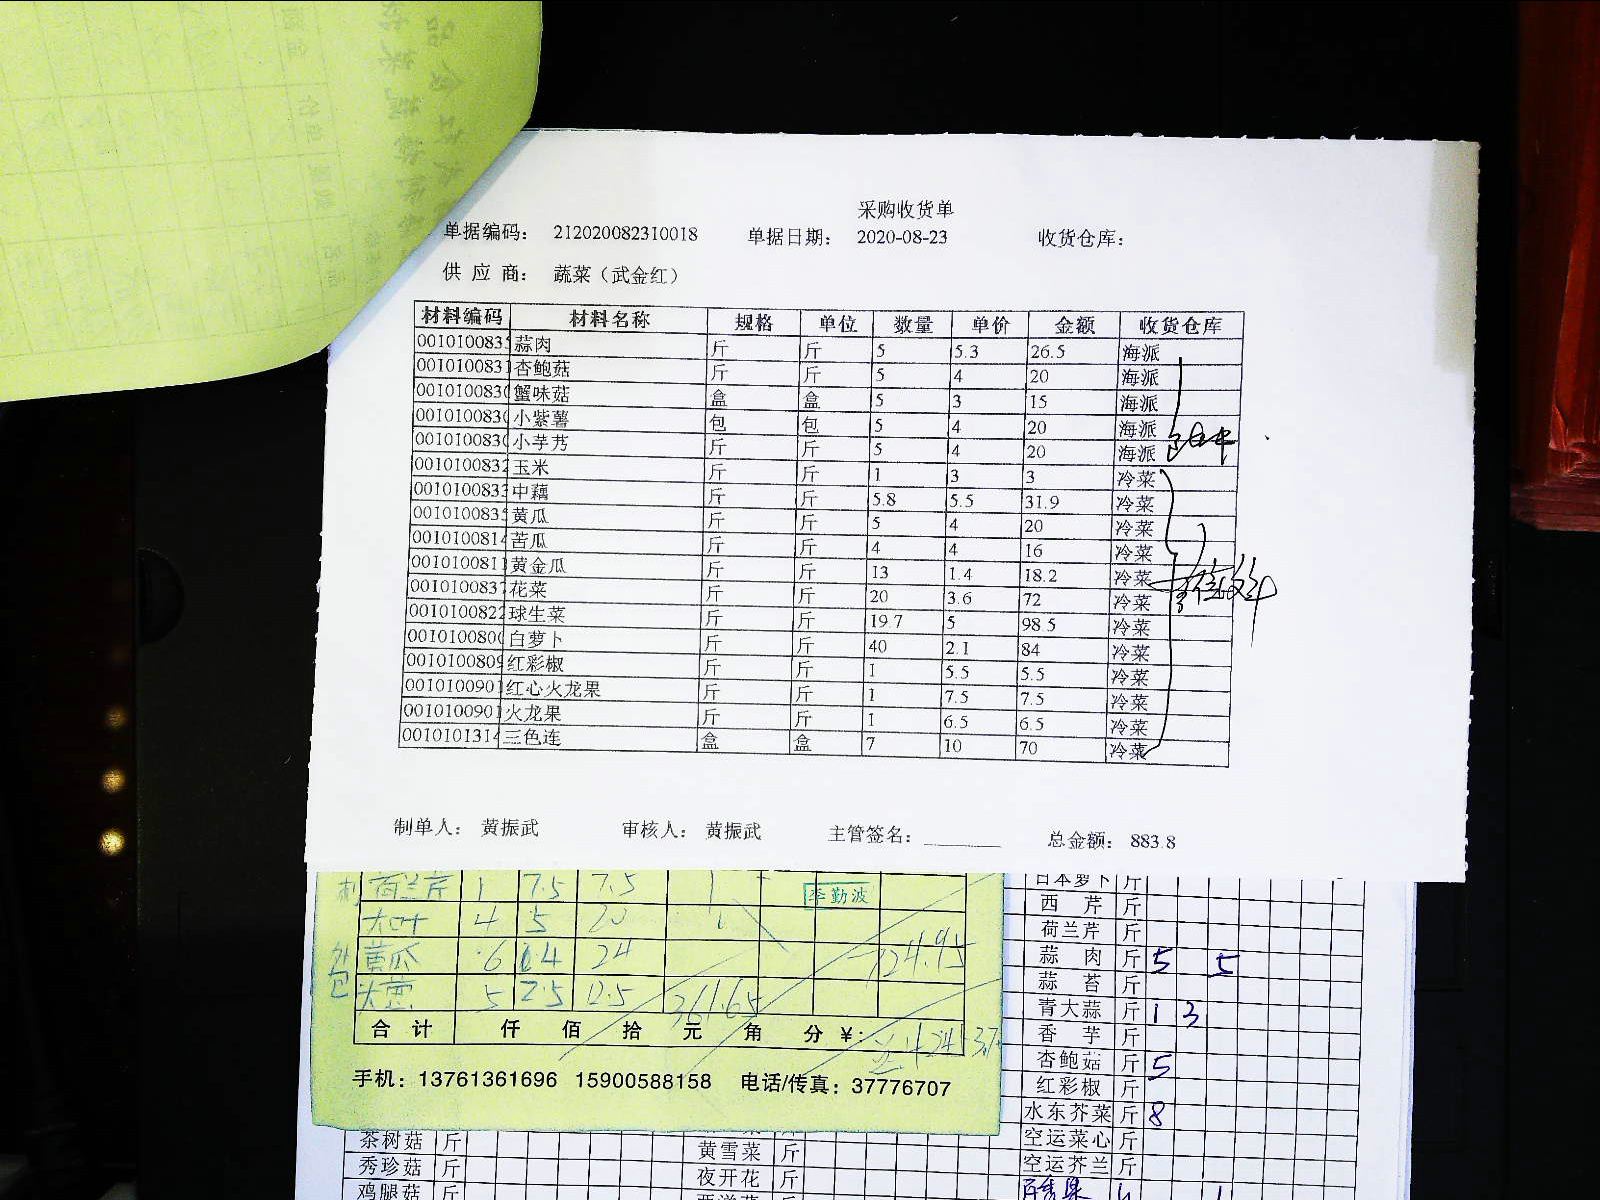 采购收货单
单据编码： 212020082310018 单据日期： 2020-08-23 收货仓库：
供 应 商： 蔬菜（武金红）
材料编码 材料名称 规格 单位 数量 单价 金额 收货仓库
001010083 蒜肉 斤 斤 5 5.3 26.5 海派
0010100831 杏鲍菇 斤 斤 5 4 20 海派
001010083 蟹味菇 盒 盒 5 3 15 海派
001010083 小紫薯 包 包 5 4 20 海派
001010083 小芋艿 斤 斤 5 4 20 海派
0010100832 玉米 斤 斤 1 3 3 冷菜
001010083 中藕 斤 斤 5.8 5.5 31.9 冷菜
001010083 黄瓜 斤 斤 5 4 20 冷菜
0010100814 苦瓜 斤 斤 4 4 16 冷菜
0010100811 黄金瓜 斤 斤 13 1.4 18.2 冷菜
0010100837 花菜 斤 斤 20 3.6 72 冷菜
0010100822 球生菜 斤 斤 19.7 5 98.5 冷菜
001010080 白萝卜 斤 斤 40 2.1 84 冷菜
0010100809 红彩椒 斤 斤 1 5.5 5.5 冷菜
0010100901 红心火龙果 斤 斤 1 7.5 7.5 冷菜
0010100901 火龙果 斤 斤 1 6.5 6.5 冷菜
0010101314 三色连 盒 盒 7 10 70 冷菜
制单人： 黄振武 审核人： 黄振武 主管签名： 总金额： 883.8
荷兰芹 1 7.5 7.5
李勤波
大叶 4 5 20
黄瓜 6 4 24
大葱 5 2.5 12.5 361.65
合 计 仟 佰 拾 元 角 分 ¥：
手机：13761361696 15900588158 电话/传真：37776707
日本萝卜 斤
西 芹 斤
荷兰芹 斤
蒜 肉 斤 5 5
蒜 苔 斤
青大蒜 斤 1 3
香 芋 斤
杏鲍菇 斤 5
红彩椒 斤
水东芥菜 斤 8
空运菜心 斤
空运芥兰 斤
茶树菇 斤 黄雪菜 斤
秀珍菇 斤 夜开花 斤
鸡腿菇 斤 西洋菜 斤